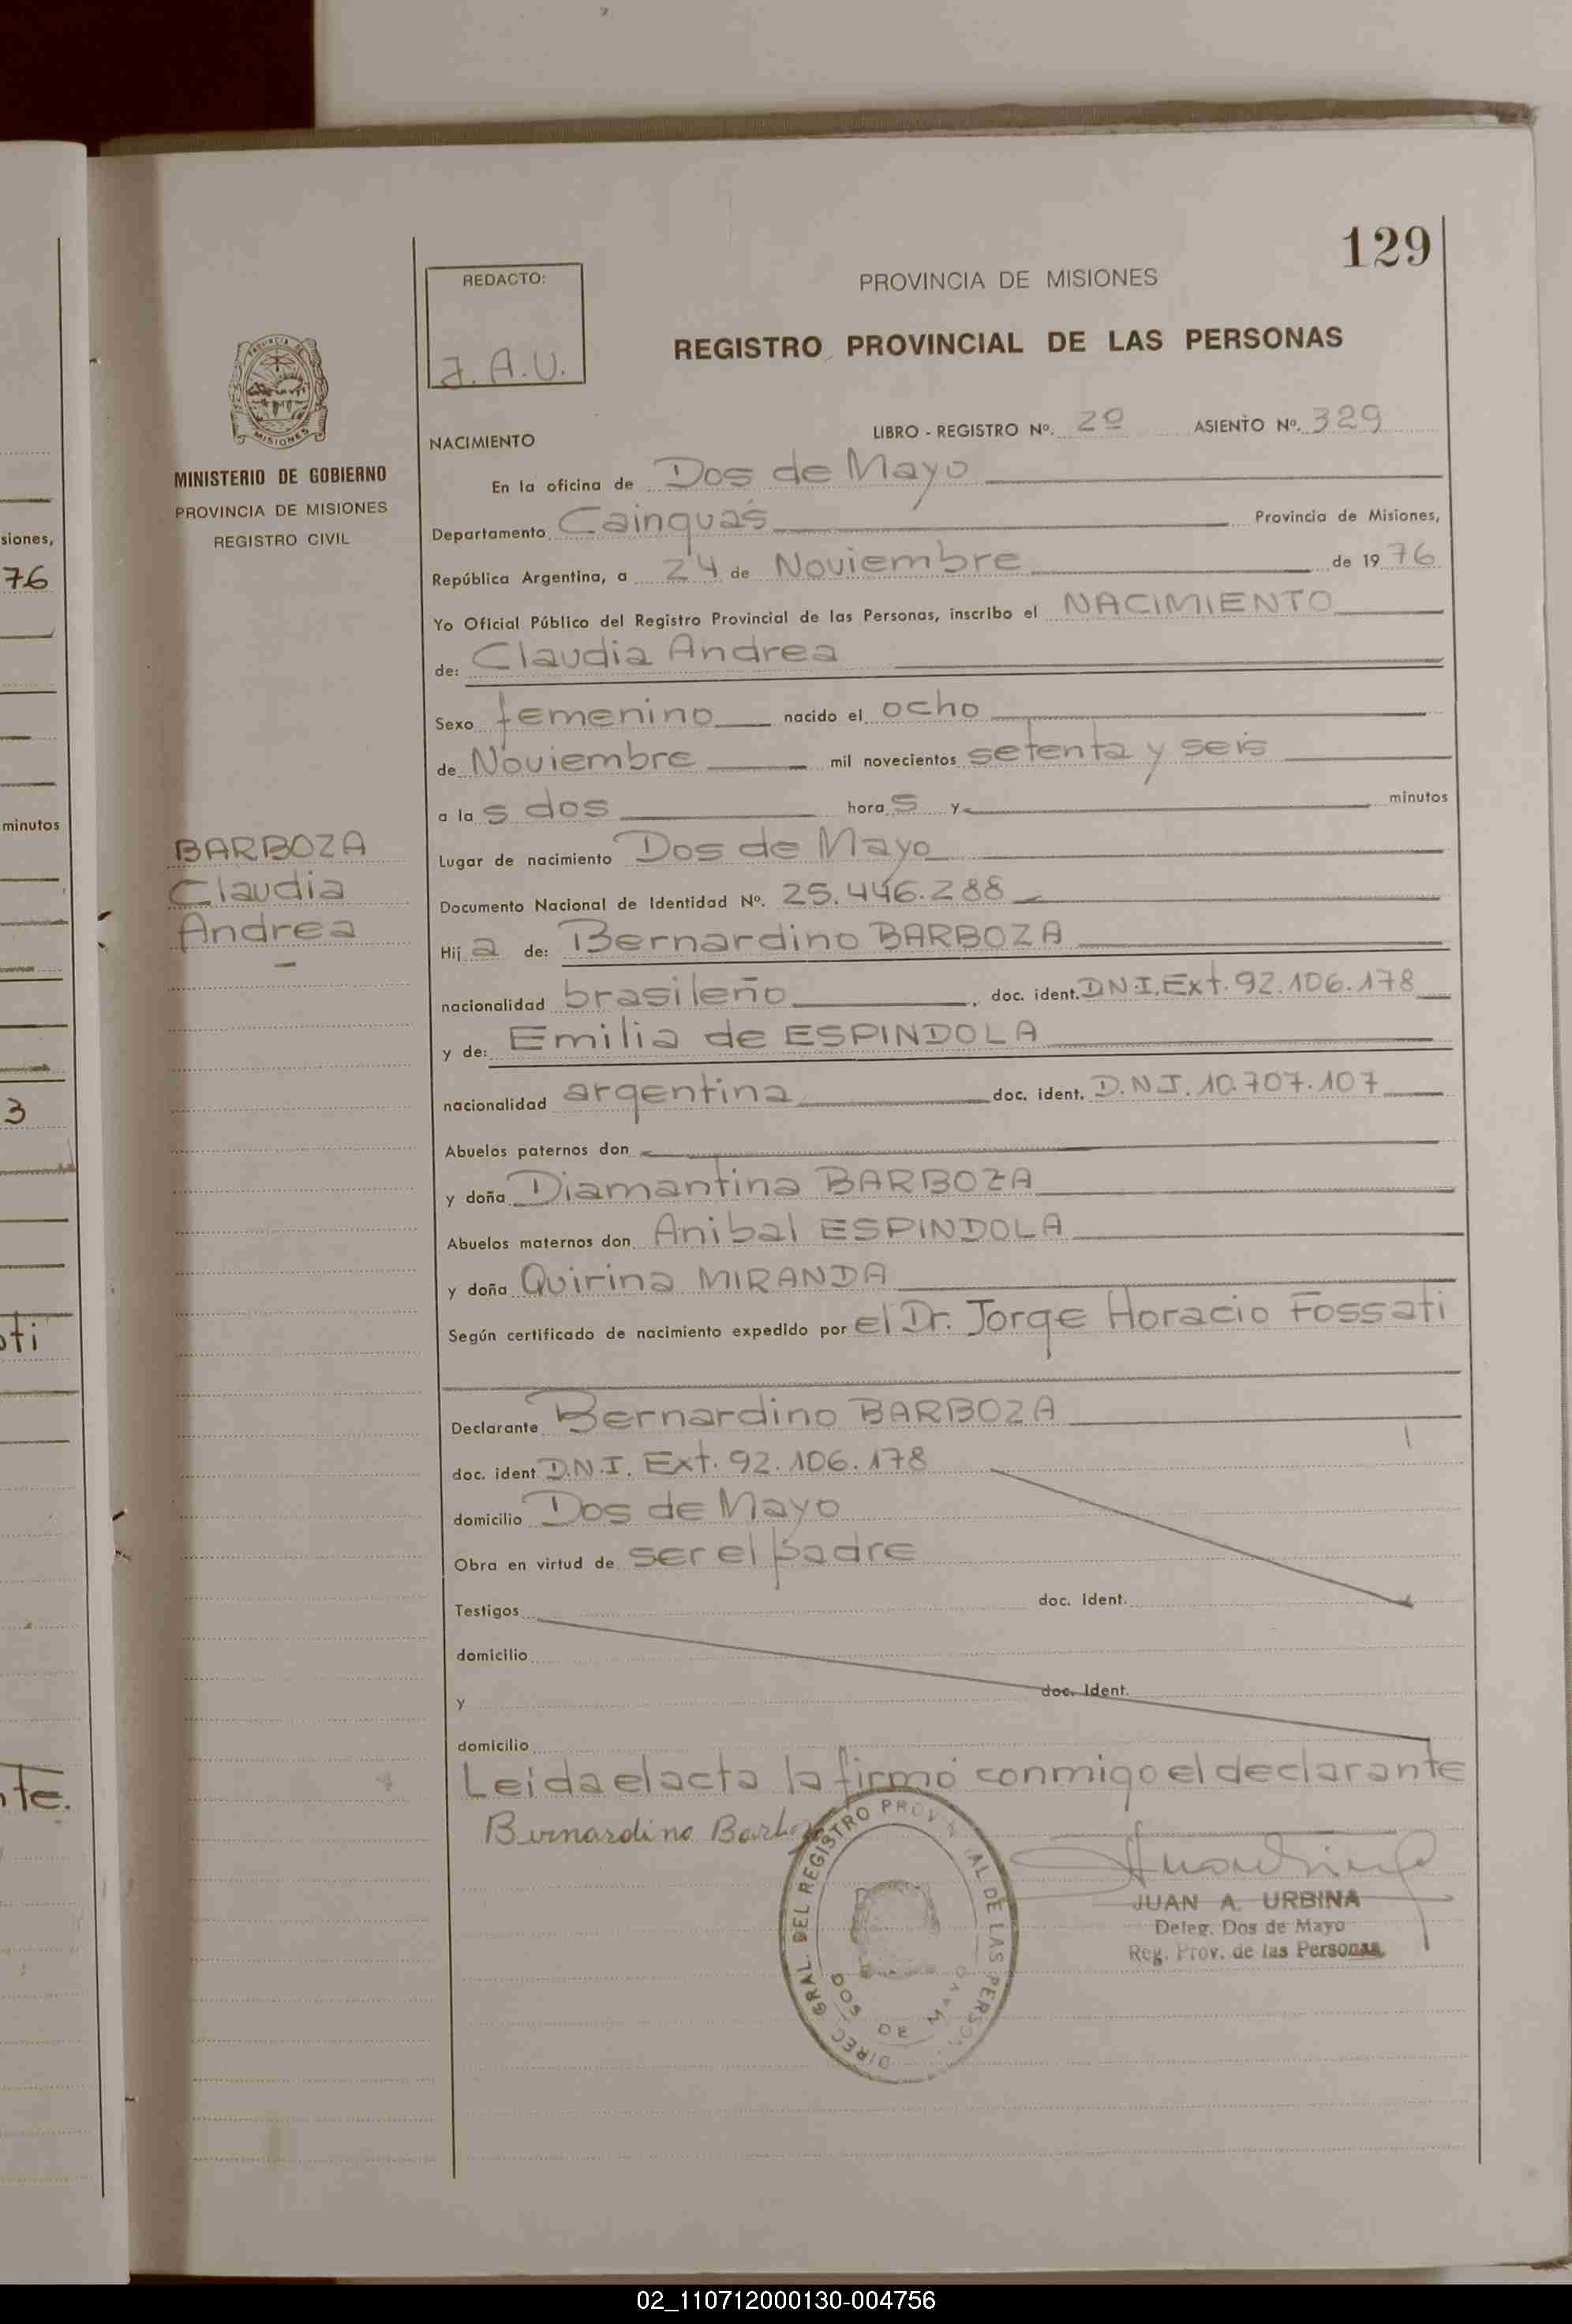 129
REDACTO:
J.A.U.
PROVINCIA DE MISIONES
REGISTRO PROVINCIAL DE LAS PERSONAS
PROVINCIA DE
MISIONES
MINISTERIO DE GOBIERNO
PROVINCIA DE MISIONES
REGISTRO CIVIL
NACIMIENTO
LIBRO - REGISTRO Nº. 2º ASIENTO Nº. 329
En la oficina de Dos de Mayo
Departamento Cainguás Provincia de Misiones,
República Argentina, a 24 de Noviembre de 1976
Yo Oficial Público del Registro Provincial de las Personas, inscribo el NACIMIENTO
de: Claudia Andrea
Sexo femenino nacido el ocho
de Noviembre mil novecientos setenta y seis
a las dos horas y minutos
BARBOZA
Claudia
Andrea
Lugar de nacimiento Dos de Mayo
Documento Nacional de Identidad Nº. 25.446.288
Hija de: Bernardino BARBOZA
nacionalidad brasileño doc. ident. D.N.I. Ext. 92.106.178
y de: Emilia de ESPINDOLA
nacionalidad argentina doc. ident. D.N.I. 10.707.107
Abuelos paternos don
y doña Diamantina BARBOZA
Abuelos maternos don Anibal ESPINDOLA
y doña Quirina MIRANDA
Según certificado de nacimiento expedido por el Dr. Jorge Horacio Fossati
Declarante Bernardino BARBOZA
doc. ident D.N.I. Ext. 92.106.178
domicilio Dos de Mayo
Obra en virtud de ser el padre
Testigos doc. ident.
domicilio
y doc. ident.
domicilio
Leída el acta la firmó conmigo el declarante
Bernardino
DIREC. GRAL. DEL REGISTRO PROVINCIAL DE LAS PERSON.
DOS DE MAYO
JUAN A. URBINA
Deleg. Dos de Mayo
Reg. Prov. de las Personas
siones,
76
minutos
3
te.
02_110712000130-004756